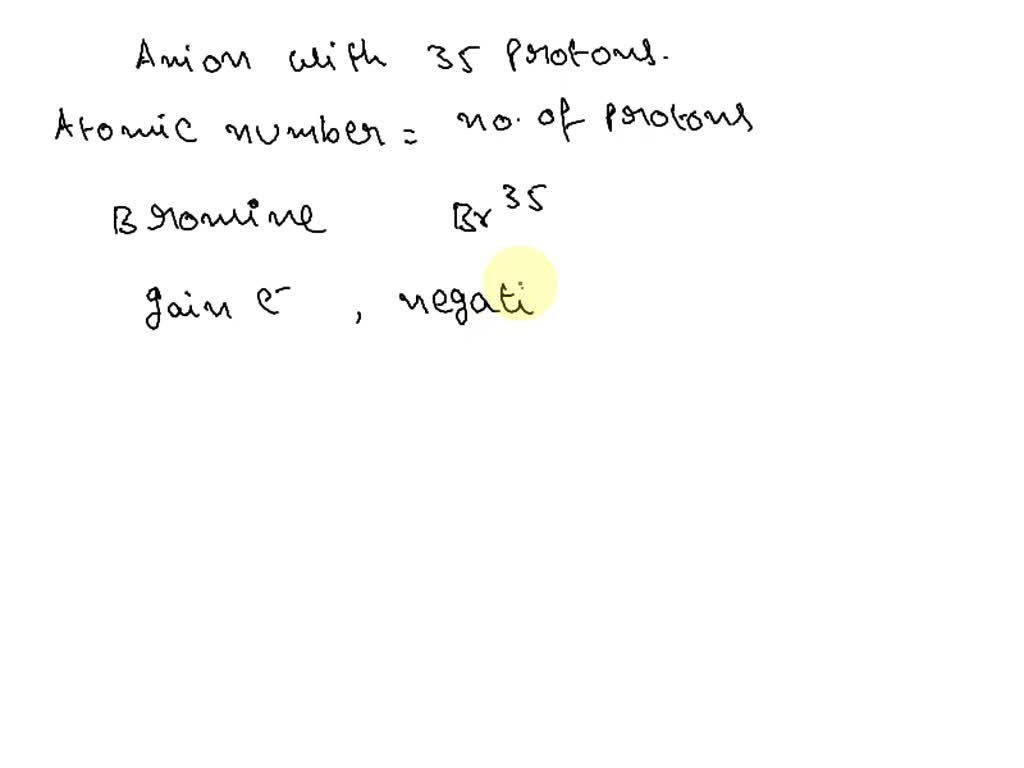 Anion with 35 protons.
Atomic number = no. of protons
Bromine Br³⁵
gain e⁻ , negati